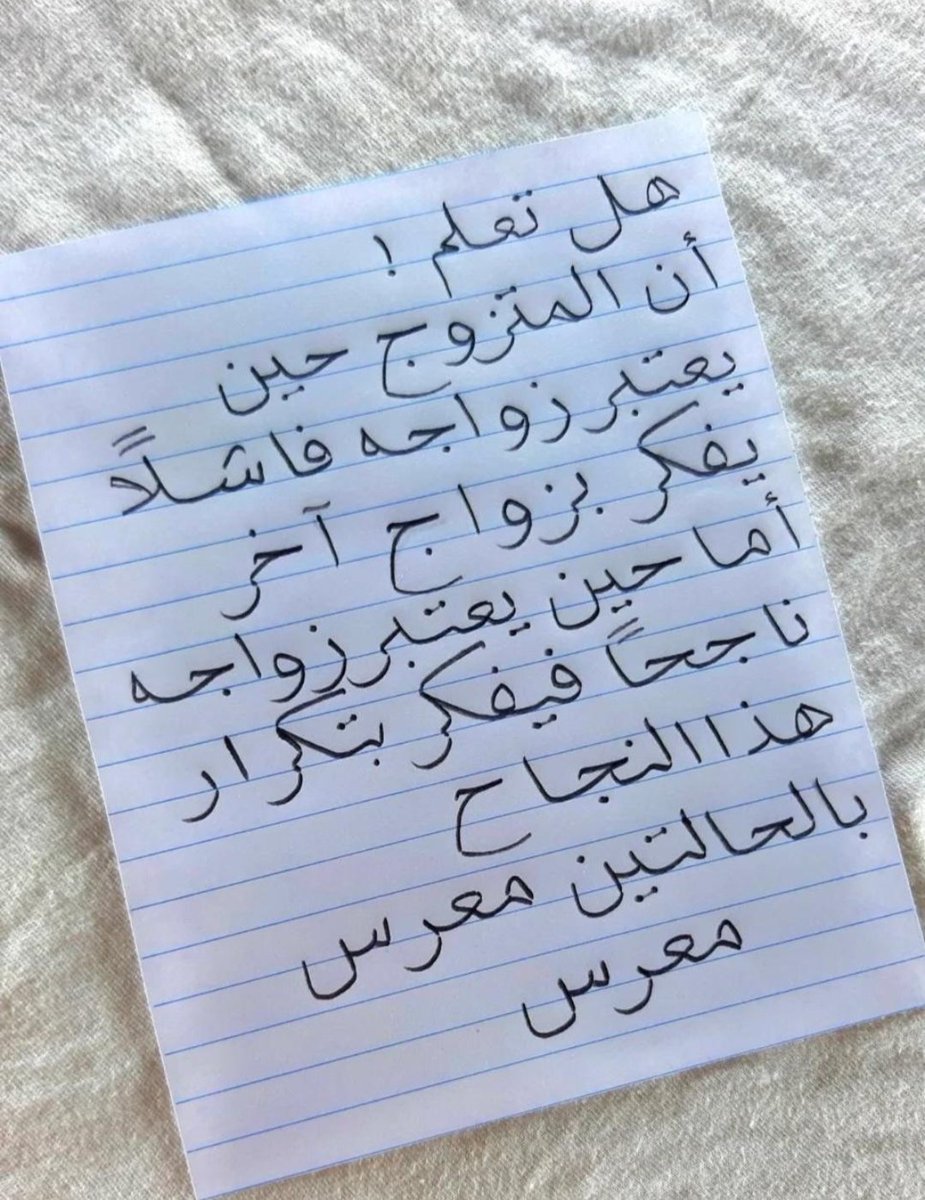 هل تعلم !
أن المتزوج حين
يعتبر زواجه فاشلاً
يفكر بزواج آخر
أما حين يعتبر زواجه
ناجحاً فيفكر بتكرار
هذا النجاح
بالحالتين معرس
معرس